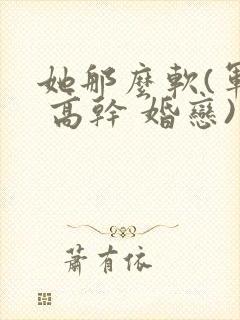 她那麼軟(軍
高幹 婚戀)
蕭有依